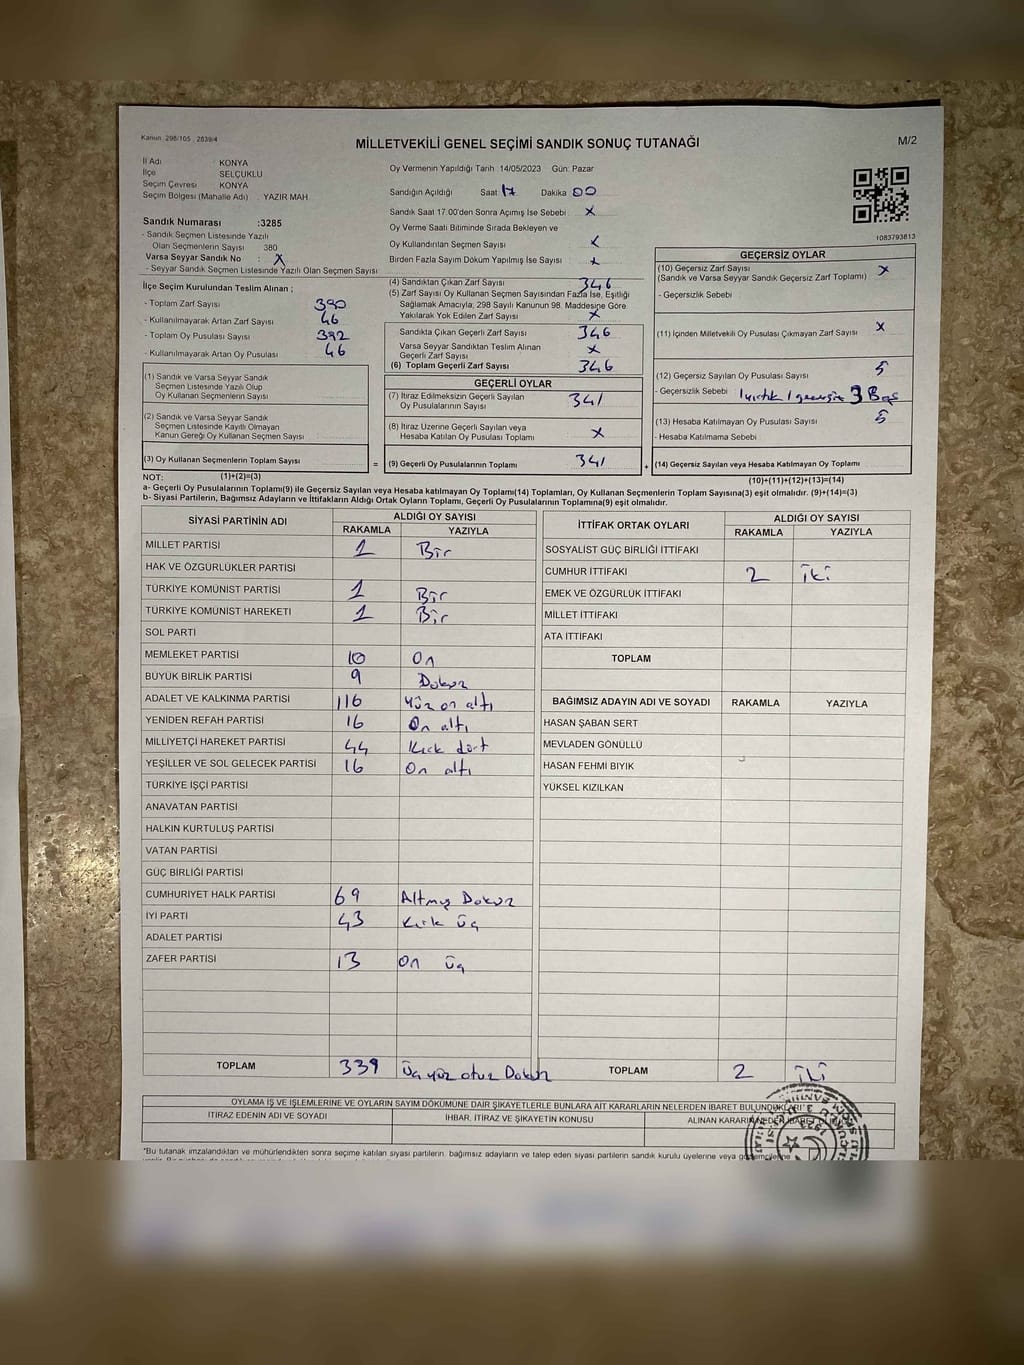 Kanun: 298/105, 2839/4
MİLLETVEKİLİ GENEL SEÇİMİ SANDIK SONUÇ TUTANAĞI
M/2
İl Adı : KONYA
İlçe : SELÇUKLU
Seçim Çevresi : KONYA
Seçim Bölgesi (Mahalle Adı) : YAZIR MAH.
Oy Vermenin Yapıldığı Tarih 14/05/2023 Gün: Pazar
Sandığın Açıldığı Saat: 17 Dakika: 00
Sandık Saat 17.00'den Sonra Açımış İse Sebebi : X
Oy Verme Saati Bitiminde Sırada Bekleyen ve
Oy Kullandırılan Seçmen Sayısı X
Birden Fazla Sayım Döküm Yapılmış İse Sayısı : X
Sandık Numarası :3285
- Sandık Seçmen Listesinde Yazılı
Olan Seçmenlerin Sayısı 380
Varsa Seyyar Sandık No : X
- Seyyar Sandık Seçmen Listesinde Yazılı Olan Seçmen Sayısı
1083793813
İlçe Seçim Kurulundan Teslim Alınan ;
- Toplam Zarf Sayısı 390
- Kullanılmayarak Artan Zarf Sayısı 46
- Toplam Oy Pusulası Sayısı 392
- Kullanılmayarak Artan Oy Pusulası 46
(1) Sandık ve Varsa Seyyar Sandık
Seçmen Listesinde Yazılı Olup
Oy Kullanan Seçmenlerin Sayısı
(2) Sandık ve Varsa Seyyar Sandık
Seçmen Listesinde Kayıtlı Olmayan
Kanun Gereği Oy Kullanan Seçmen Sayısı
(3) Oy Kullanan Seçmenlerin Toplam Sayısı
(1)+(2)=(3)
(4) Sandıktan Çıkan Zarf Sayısı 346
(5) Zarf Sayısı Oy Kullanan Seçmen Sayısından Fazla İse, Eşitliği
Sağlamak Amacıyla; 298 Sayılı Kanunun 98. Maddesine Göre
Yakılarak Yok Edilen Zarf Sayısı X
Sandıkta Çıkan Geçerli Zarf Sayısı 346
Varsa Seyyar Sandıktan Teslim Alınan
Geçerli Zarf Sayısı X
(6) Toplam Geçerli Zarf Sayısı 346
GEÇERLİ OYLAR
(7) İtiraz Edilmeksizin Geçerli Sayılan
Oy Pusulalarının Sayısı 341
(8) İtiraz Üzerine Geçerli Sayılan veya
Hesaba Katılan Oy Pusulası Toplamı X
= (9) Geçerli Oy Pusulalarının Toplamı 341
GEÇERSİZ OYLAR
(10) Geçersiz Zarf Sayısı X
(Sandık ve Varsa Seyyar Sandık Geçersiz Zarf Toplamı)
- Geçersizlik Sebebi
(11) İçinden Milletvekili Oy Pusulası Çıkmayan Zarf Sayısı X
(12) Geçersiz Sayılan Oy Pusulası Sayısı 5
- Geçersizlik Sebebi 1 yırtık 1 geçersiz 3 Boş
(13) Hesaba Katılmayan Oy Pusulası Sayısı 5
- Hesaba Katılmama Sebebi
+ (14) Geçersiz Sayılan veya Hesaba Katılmayan Oy Toplamı
(10)+(11)+(12)+(13)=(14)
NOT:
a- Geçerli Oy Pusulalarının Toplamı(9) ile Geçersiz Sayılan veya Hesaba katılmayan Oy Toplamı(14) Toplamları, Oy Kullanan Seçmenlerin Toplam Sayısına(3) eşit olmalıdır. (9)+(14)=(3)
b- Siyasi Partilerin, Bağımsız Adayların ve İttifakların Aldığı Ortak Oyların Toplamı, Geçerli Oy Pusulalarının Toplamına(9) eşit olmalıdır.
SİYASİ PARTİNİN ADI ALDIĞI OY SAYISI
RAKAMLA YAZIYLA
MİLLET PARTİSİ 1 Bir
HAK VE ÖZGÜRLÜKLER PARTİSİ
TÜRKİYE KOMÜNİST PARTİSİ 1 Bir
TÜRKİYE KOMÜNİST HAREKETİ 1 Bir
SOL PARTİ
MEMLEKET PARTİSİ 10 On
BÜYÜK BİRLİK PARTİSİ 9 Dokuz
ADALET VE KALKINMA PARTİSİ 116 Yüz on altı
YENİDEN REFAH PARTİSİ 16 On altı
MİLLİYETÇİ HAREKET PARTİSİ 44 Kırk dört
YEŞİLLER VE SOL GELECEK PARTİSİ 16 On altı
TÜRKİYE İŞÇİ PARTİSİ
ANAVATAN PARTİSİ
HALKIN KURTULUŞ PARTİSİ
VATAN PARTİSİ
GÜÇ BİRLİĞİ PARTİSİ
CUMHURİYET HALK PARTİSİ 69 Altmış Dokuz
İYİ PARTİ 43 Kırk üç
ADALET PARTİSİ
ZAFER PARTİSİ 13 On üç
TOPLAM 339 Üç yüz otuz Dokuz
İTTİFAK ORTAK OYLARI ALDIĞI OY SAYISI
RAKAMLA YAZIYLA
SOSYALİST GÜÇ BİRLİĞİ İTTİFAKI
CUMHUR İTTİFAKI 2 İki
EMEK VE ÖZGÜRLÜK İTTİFAKI
MİLLET İTTİFAKI
ATA İTTİFAKI
TOPLAM
BAĞIMSIZ ADAYIN ADI VE SOYADI RAKAMLA YAZIYLA
HASAN ŞABAN SERT
MEVLADEN GÖNÜLLÜ
HASAN FEHMİ BIYIK
YÜKSEL KIZILKAN
TOPLAM 2 İki
OYLAMA İŞ VE İŞLEMLERİNE VE OYLARIN SAYIM DÖKÜMÜNE DAİR ŞİKAYETLERLE BUNLARA AİT KARARLARIN NELERDEN İBARET BULUNDUKLARI
İTİRAZ EDENİN ADI VE SOYADI İHBAR, İTİRAZ VE ŞİKAYETİN KONUSU ALINAN KARARIN NEDEN İBARET
*Bu tutanak imzalandıktan ve mühürlendikten sonra seçime katılan siyasi partilerin, bağımsız adayların ve talep eden siyasi partilerin sandık kurulu üyelerine veya gözlemcilerine